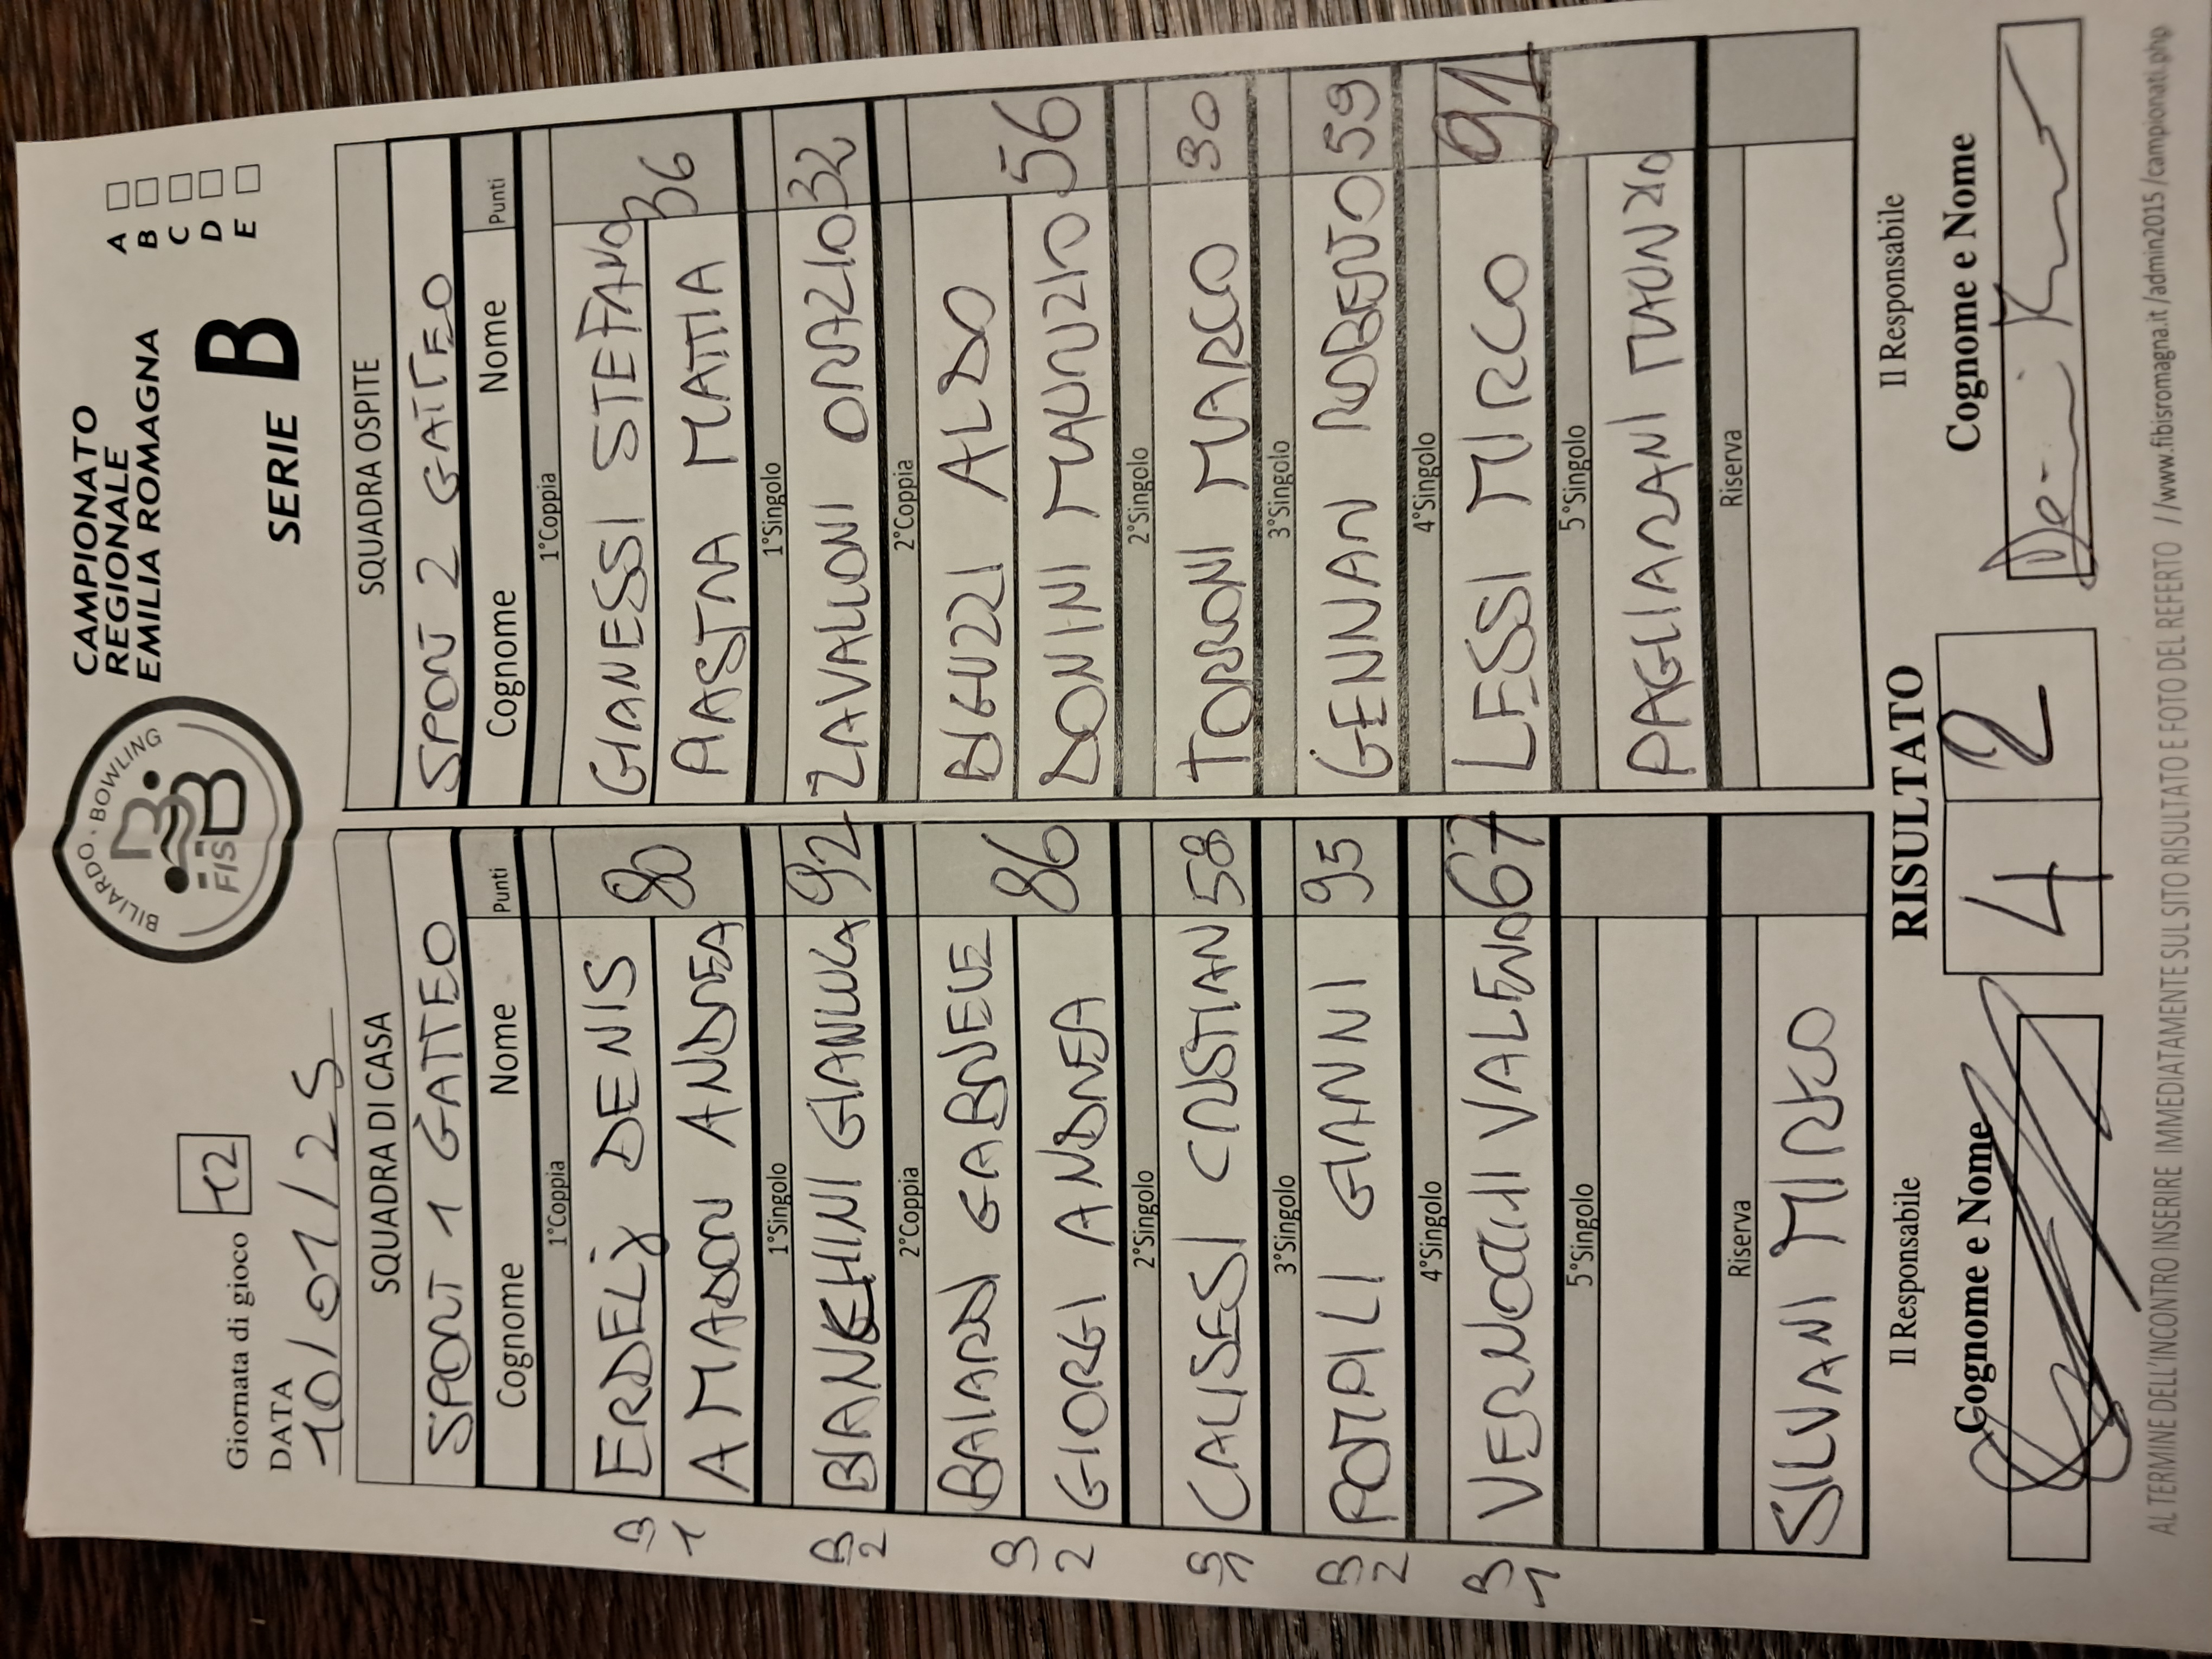 BILIARDO · BOWLING
FISBB
CAMPIONATO
REGIONALE
EMILIA ROMAGNA
SERIE B
A
B
C
D
E
Giornata di gioco 12
DATA
10/01/25
SQUADRA DI CASA SQUADRA OSPITE
SPORT 1 GATTEO SPORT 2 GATTEO
Cognome Nome Punti Cognome Nome Punti
1°Coppia 1°Coppia
B1 ERDELJ DENIS 80 GIANESSI STEFANO 36
AMADORI ANDREA MATTIA
1°Singolo 1°Singolo
B2 BIANCHINI GIANLUCA 92 ZAVALLONI ORAZIO 32
2°Coppia 2°Coppia
B2 BAIARDI GABRIELE 86 BIGUZZI ALDO 56
GIORGI ANDREA DONINI MAURIZIO
2°Singolo 2°Singolo
B1 CALISESI CRISTIAN 58 TORRONI MARCO 30
3°Singolo 3°Singolo
B2 GIANNI 95 GENNARI ROBERTO 59
4°Singolo 4°Singolo
B1 VERNOCCHI VALERIO 67 LESSI MIRCO 91
5°Singolo 5°Singolo
PAGLIARANI MAURIZIO
Riserva Riserva
SILVANI MIRKO
Il Responsabile RISULTATO Il Responsabile
Cognome e Nome 4 2 Cognome e Nome
AL TERMINE DELL'INCONTRO INSERIRE IMMEDIATAMENTE SUL SITO RISULTATO E FOTO DEL REFERTO //www.fibisromagna.it/admin2015/campionati.php